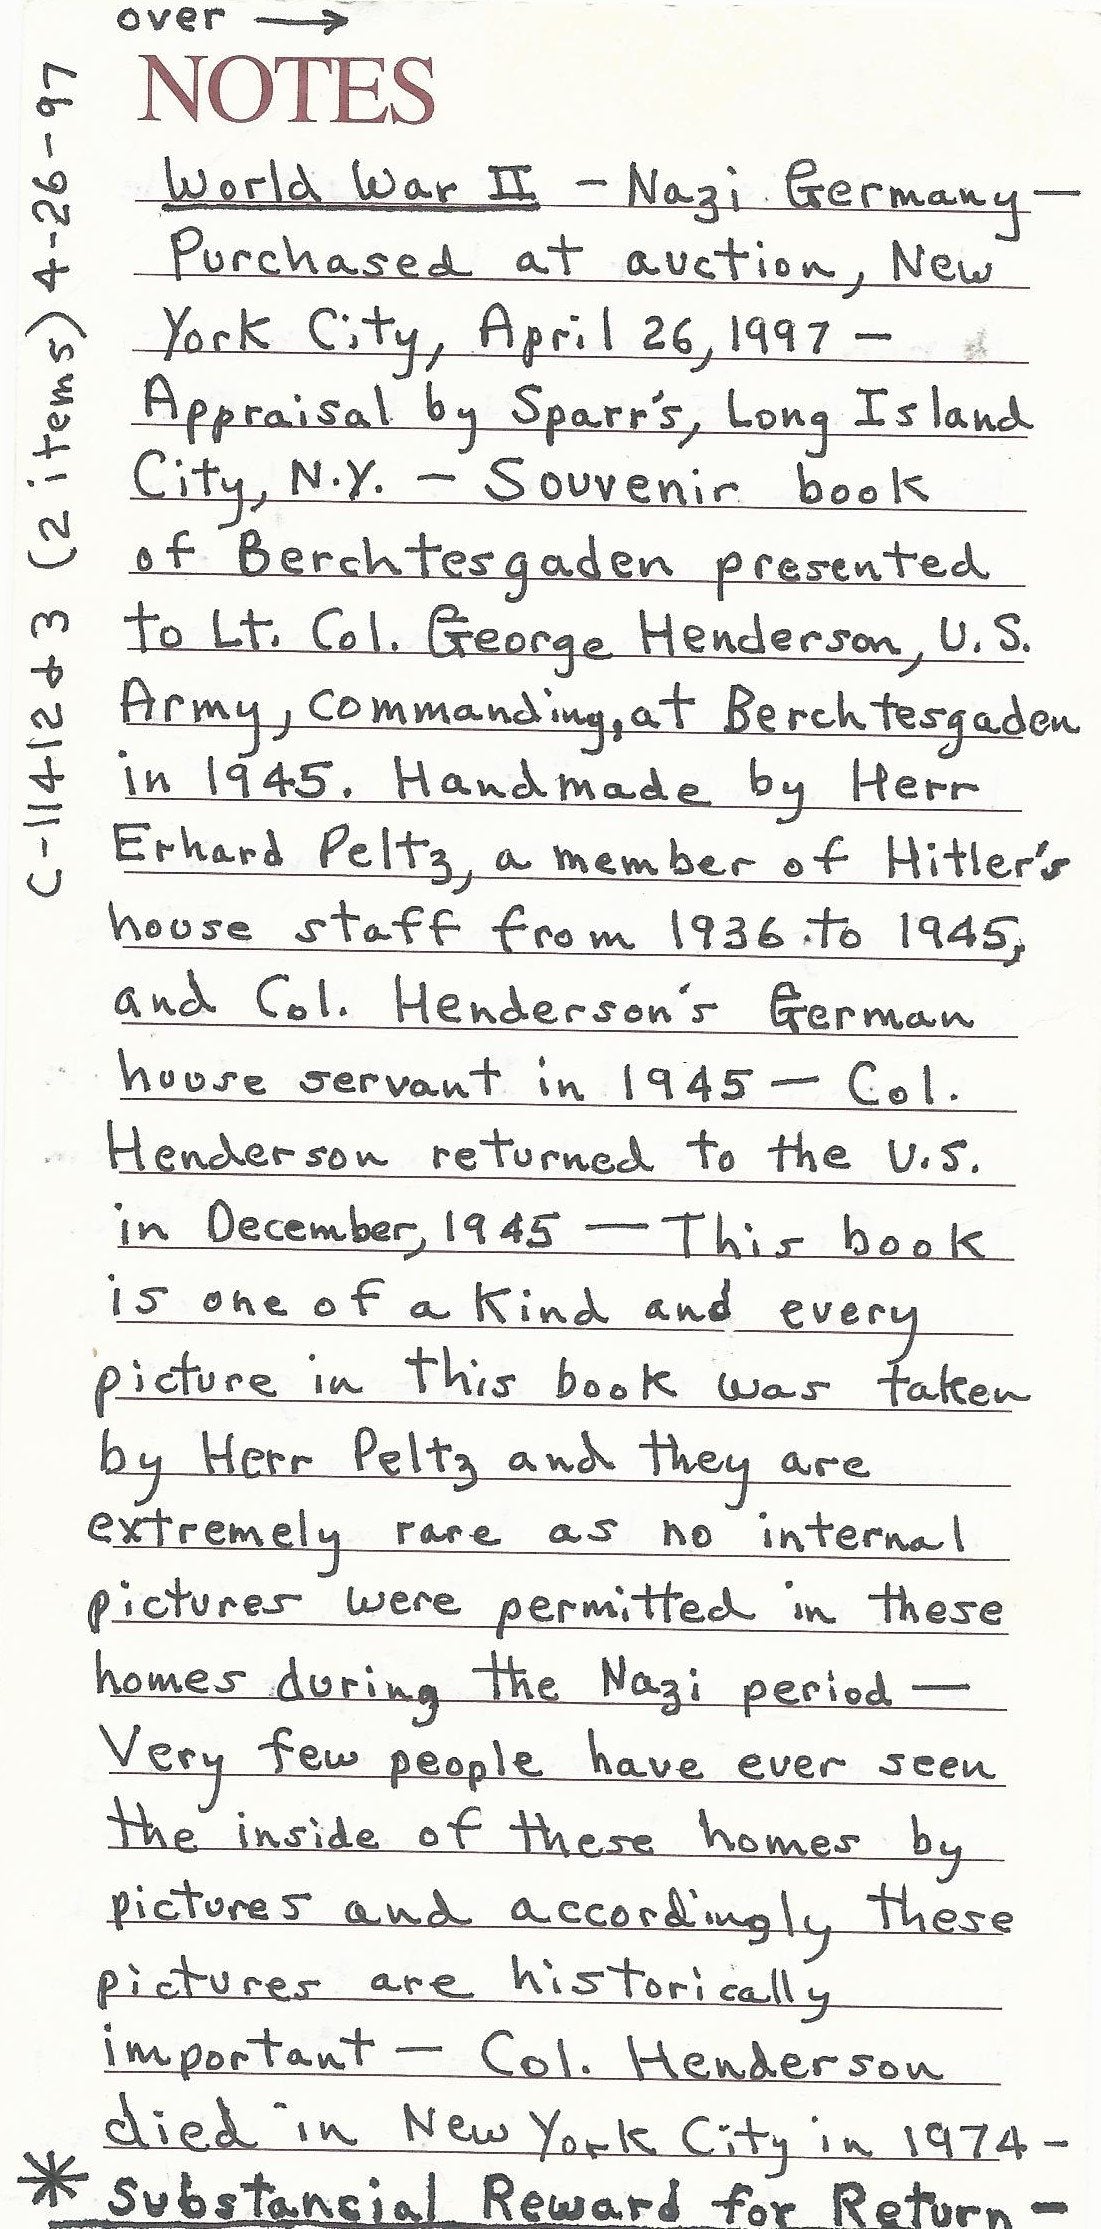 over →
NOTES
C-11412+3 (2 items) 4-26-97
World War II - Nazi Germany -
Purchased at auction, New
York City, April 26, 1997 -
Appraisal by Sparr's, Long Island
City, N.Y. - Souvenir book
of Berchtesgaden presented
to Lt. Col. George Henderson, U.S.
Army, commanding, at Berchtesgaden
in 1945. Handmade by Herr
Erhard Peltz, a member of Hitler's
house staff from 1936 to 1945,
and Col. Henderson's German
house servant in 1945 - Col.
Henderson returned to the U.S.
in December, 1945 - This book
is one of a kind and every
picture in this book was taken
by Herr Peltz and they are
extremely rare as no internal
pictures were permitted in these
homes during the Nazi period -
Very few people have ever seen
the inside of these homes by
pictures and accordingly these
pictures are historically
important - Col. Henderson
died in New York City in 1974 -
* Substancial Reward for Return -